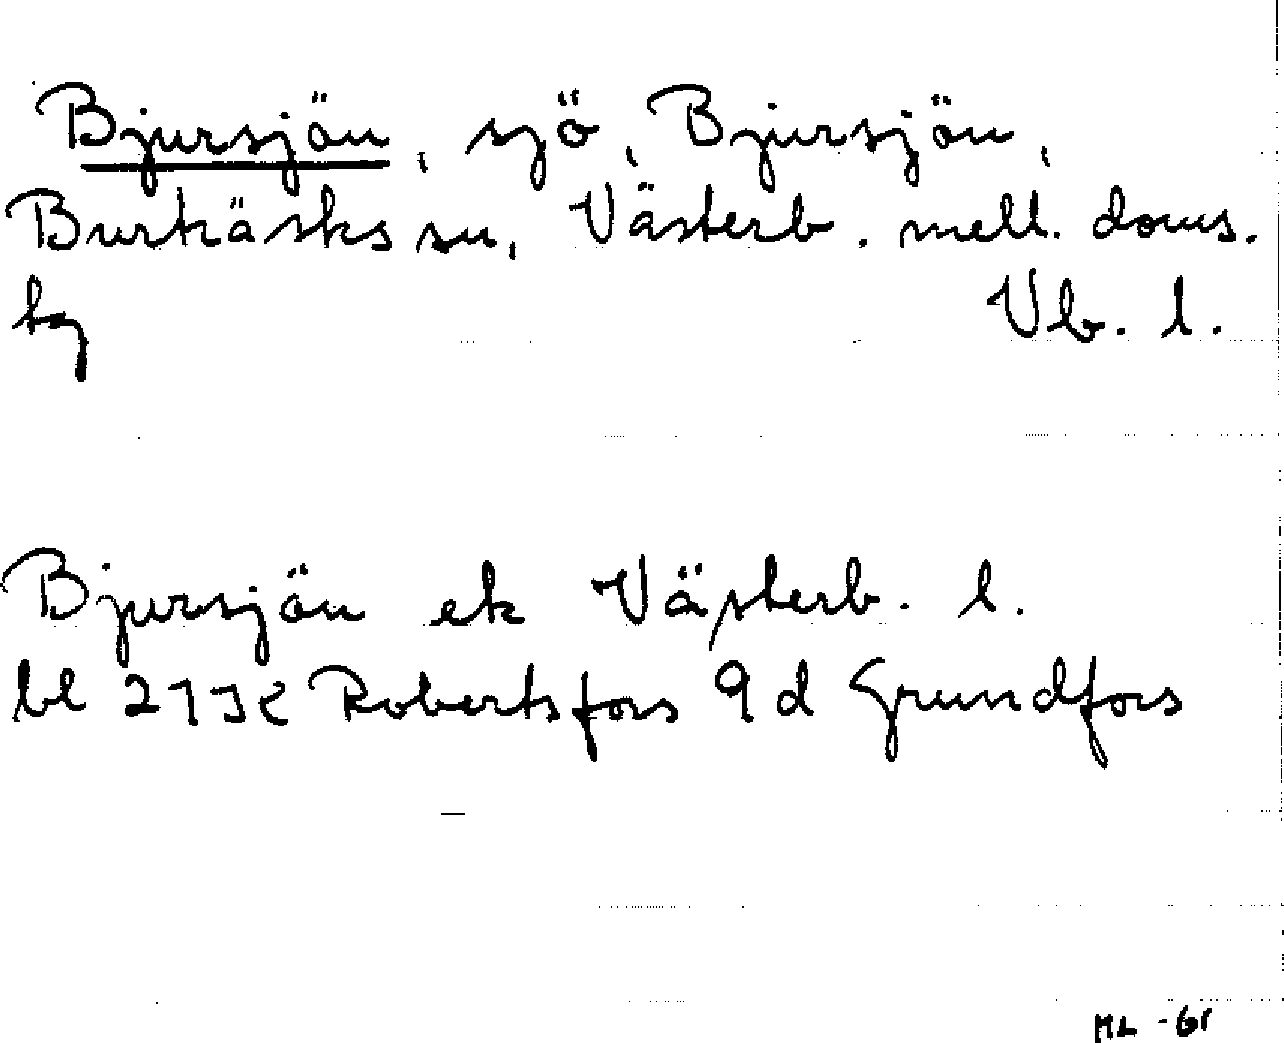 Bjursjön, sjö, Bjursjön,
Burträsks sn, Västerb. mell. doms.
by Vb. l.
Bjursjön ek Västerb. l.
bl 21 K Robertsfors 9 d Grundfors
ML -61